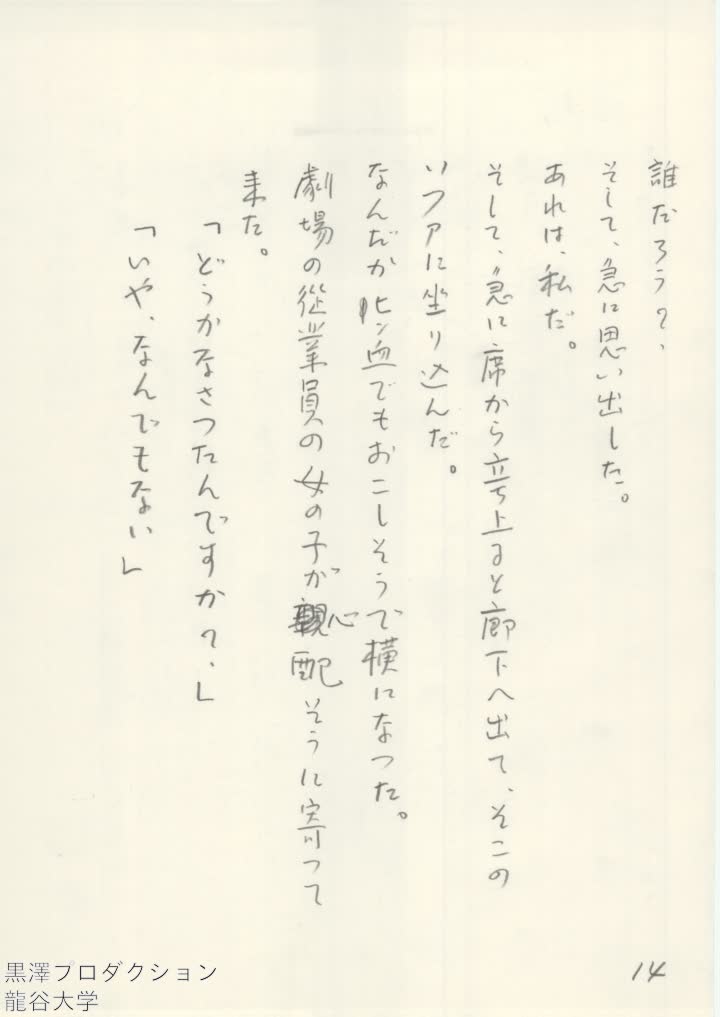 誰だろう?、
そして、急に思い出した。
あれは、私だ。
そして、急に席から立ち上ると廊下へ出て、そこの
いファに坐り込んだ。
なんだか ヒン血でもおこしそうで横になつた。
劇場の従業員の女の子が心配そうに寄つて
来た。
「どうかなさつたんですか?、」
「いや、なんでもない」
14
黒澤プロダクション
龍谷大学